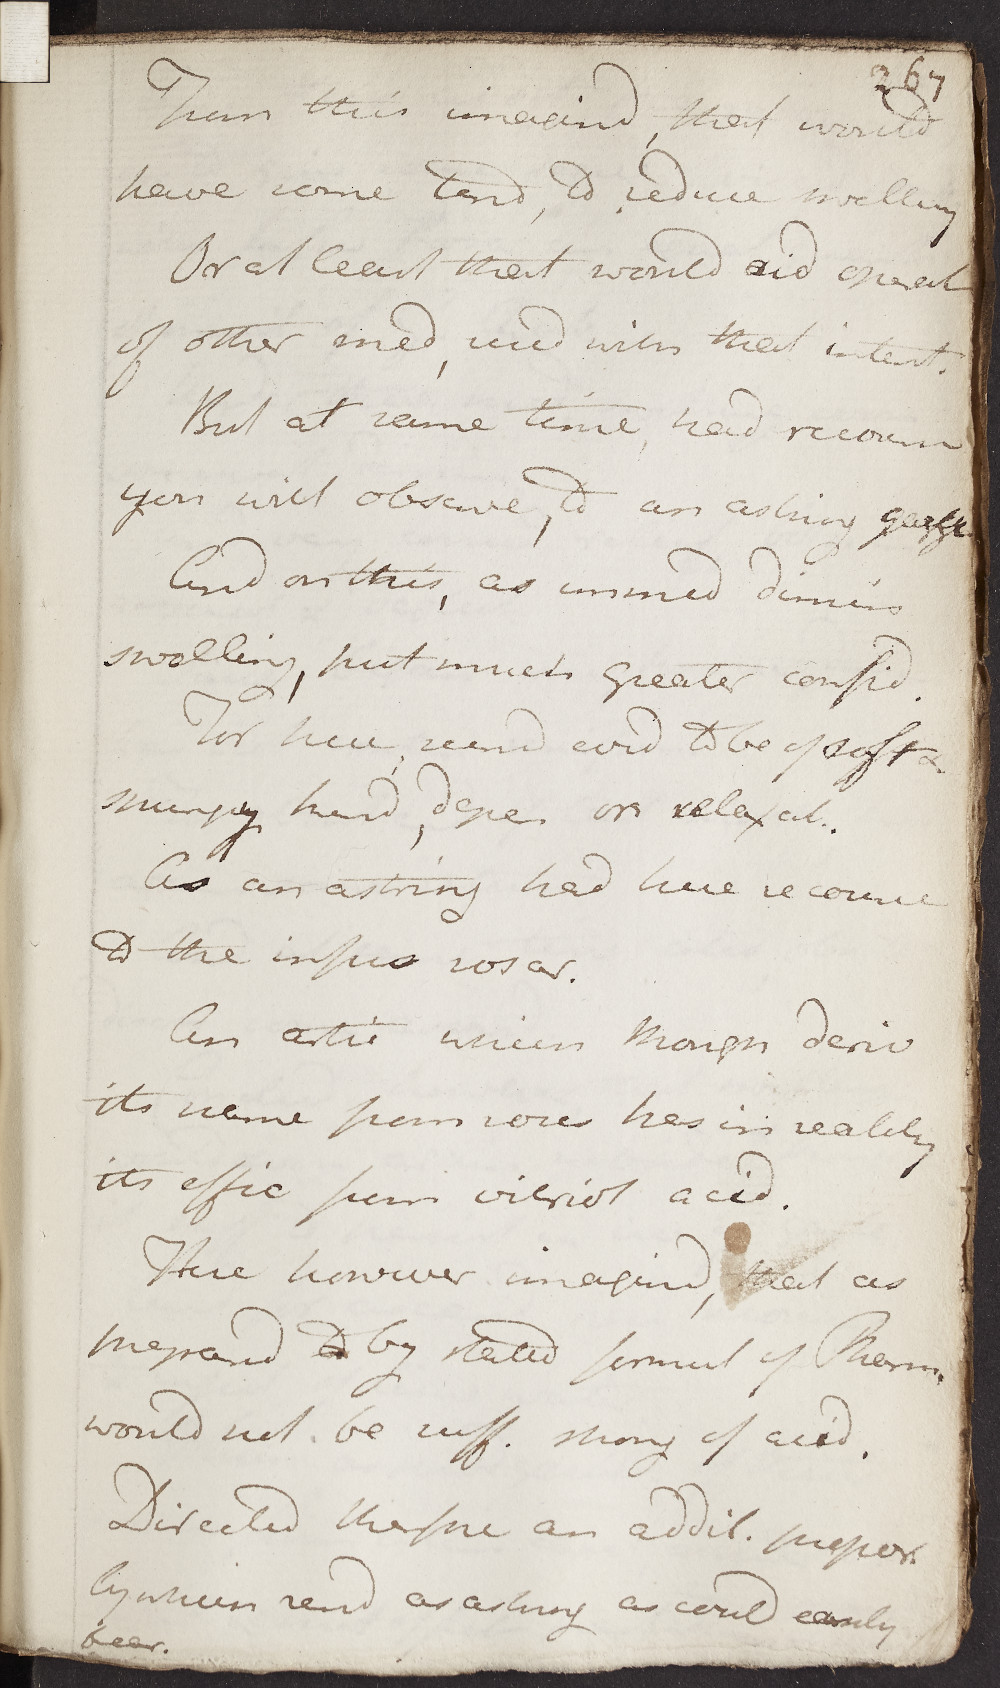 267
Thro this imagind, that would
have some tend, to reduce swelling
Or at least that would aid operat
of other med, used with that intent.
But at same time, had recours
you will observe, to an astring gargle
And on this, as immed dimin
swelling, put much greater confid.
For here, seemd evid to be of soft &
spungy kind, depen on relaxat.
As an astring had here recourse
to the infus rosar.
An artic which though deriv
its name from roses has in reality
its effic from vitriol acid.
Here however imagind, that as
prepared by stated formul of Pharm.
would not be suff. strong of acid.
Directed therfore an addit. propor.
by which rend as astring as could easily
bear.